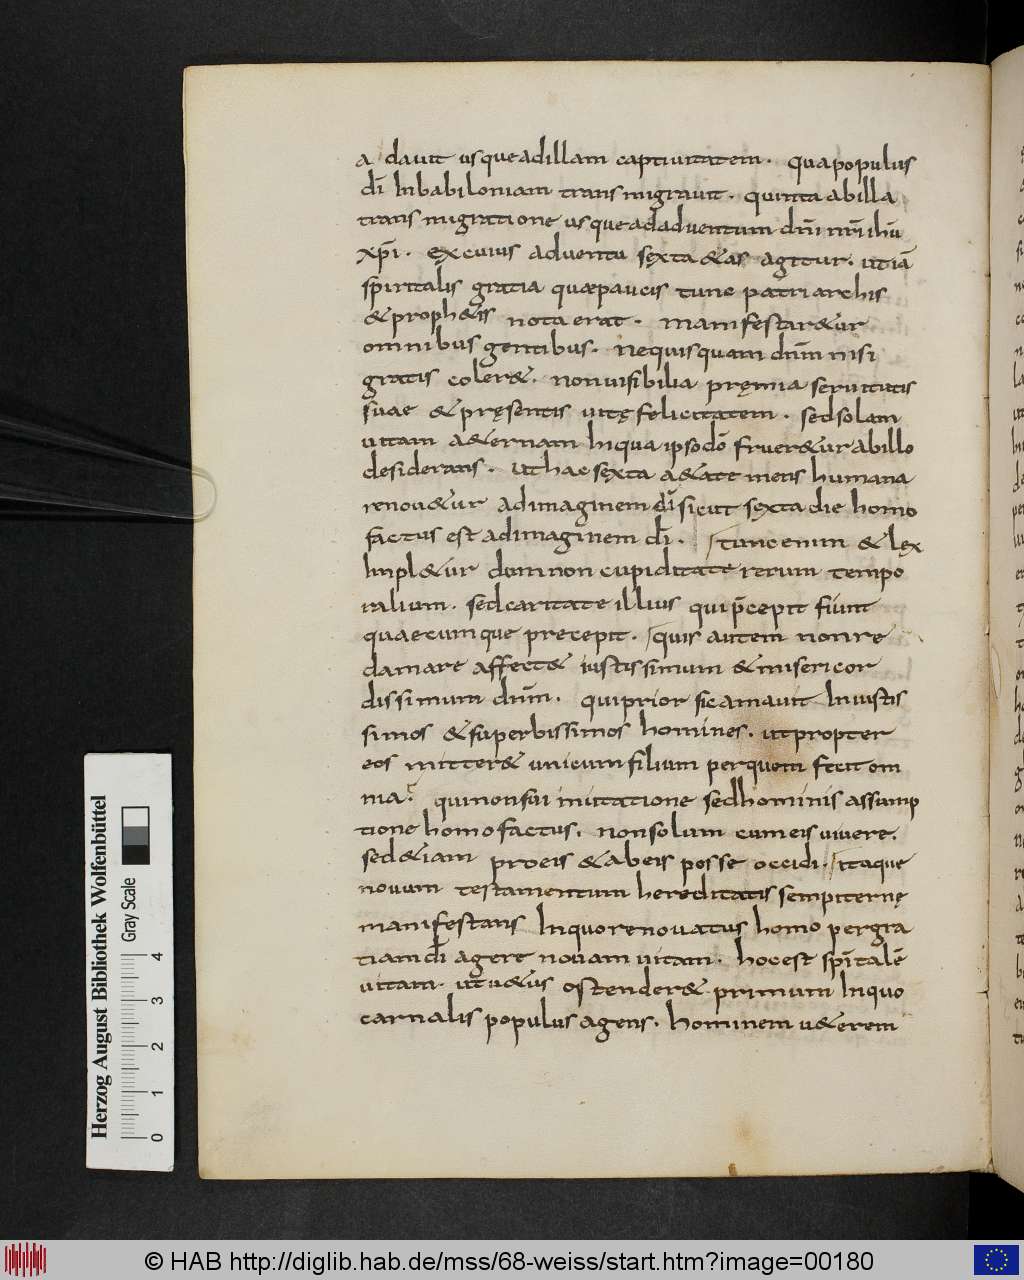 a dauit usque ad illam captiuitatem. qua populus
dī In babiloniam transmigrauit. quinta ab illa
transmigratione usque ad aduentum dn̄i nr̄i ihū
xp̄i. ex cuius aduentu sexta &as agitur. ut iā
spiritalis gratia quae paucis tunc patriarchis
& proph&is nota erat. manifestar&ur
omnibus gentibus. ne quisquam dn̄m nisi
gratis coler&. non uisibilia pręmia seruitutis
suae & pręsentis uitę felicitatem. sed solam
uitam a&ernam In qua ipso dō fruer&ur ab illo
desiderans. ut hac sexta a&ate mens humana
renou&ur ad imaginem dī sicut sexta die homo
factus est ad imaginem dī. tunc enim & lex
Impl&ur dum non cupiditate rerum tempo
ralium. sed caritate illius qui p̄cepit fiunt
quaecumque precepit. quis autem non re
damare affect& iustissimum & misericor
dissimum dm̄. qui prior sic amauit Iniustis
simos & superbissimos homines. ut propter
eos mitter& unicum filium per quem fecit om
nia. qui non sui mutatione sed hominis assump
tione homo factus. non solum cum eis uiuere.
sed &iam pro eis & ab eis posse occidi. itaque
nouum testamentum hereditatis sempiternę
manifestans In quo renouatus homo per gra
tiam dī ageret nouam uitam. hoc est spīritalē
uitam. ut u&us ostender& primum In quo
carnalis populus agens. hominem u&erem
Herzog August Bibliothek Wolfenbüttel
Gray Scale
0 1 2 3 4
© HAB http://diglib.hab.de/mss/68-weiss/start.htm?image=00180